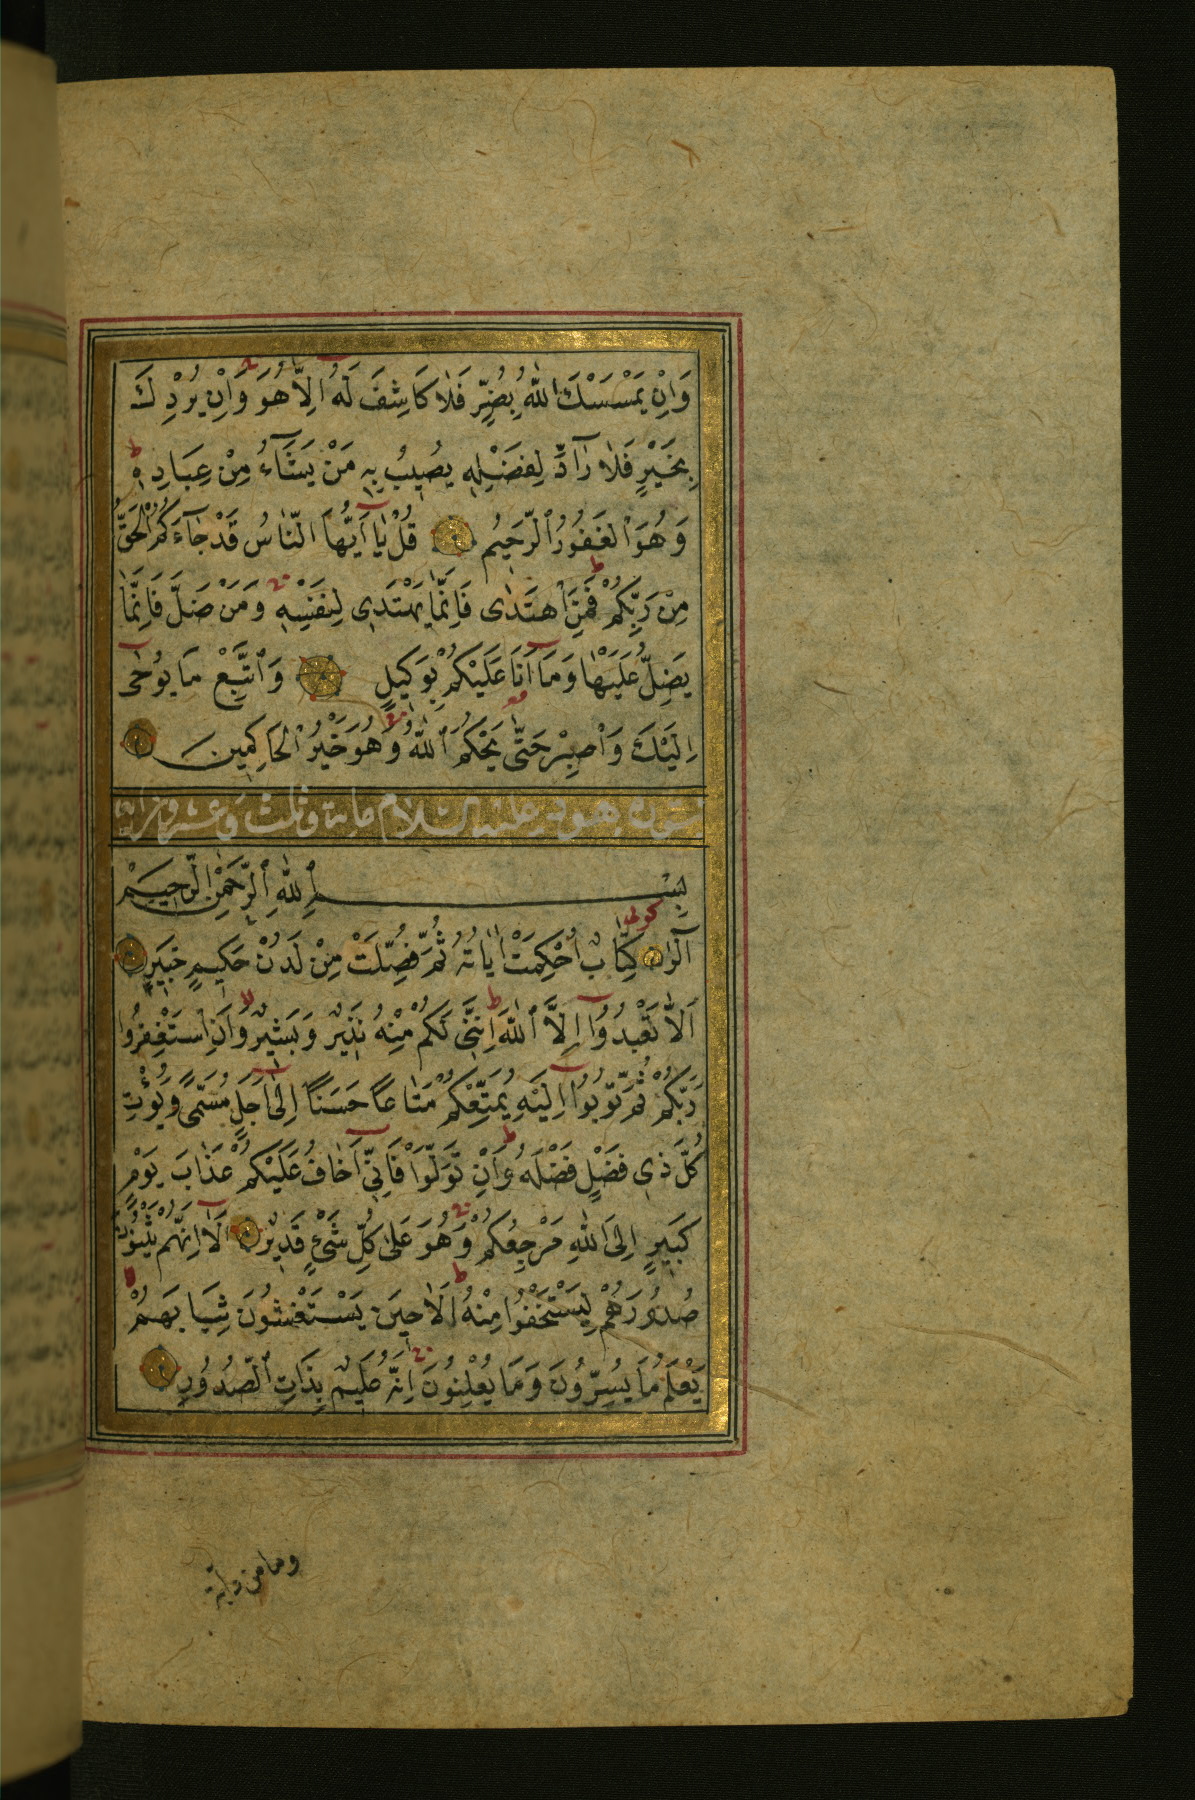 وَاِنْ يَمْسَسْكَ اللّٰهُ بِضُرٍّ فَلَا كَاشِفَ لَهُ اِلَّا هُوَ وَاِنْ يُرِدْكَ
بِخَيْرٍ فَلَا رَآدَّ لِفَضْلِهٖ يُصِيبُ بِهٖ مَنْ يَشَآءُ مِنْ عِبَادِهٖ ط
وَهُوَ الْغَفُورُ الرَّحِيمُ قُلْ يَا اَيُّهَا النَّاسُ قَدْ جَآءَكُمُ الْحَقُّ
مِنْ رَبِّكُمْ ط فَمَنِ اهْتَدٰى فَاِنَّمَا يَهْتَدِى لِنَفْسِهٖ وَمَنْ ضَلَّ فَاِنَّمَا
يَضِلُّ عَلَيْهَا وَمَآ اَنَا عَلَيْكُمْ بِوَكِيلٍ وَاتَّبِعْ مَا يُوحٰى
اِلَيْكَ وَاصْبِرْ حَتّٰى يَحْكُمَ اللّٰهُ وَهُوَ خَيْرُ الْحَاكِمِينَ
سورة هود عليه السلام ماية وثلث وعشرون اية
بِسْمِ اللّٰهِ الرَّحْمٰنِ الرَّحِيمْ
الٓرٰ كوفى كِتَابٌ اُحْكِمَتْ اٰيَاتُهُ ثُمَّ فُصِّلَتْ مِنْ لَدُنْ حَكِيمٍ خَبِيرٍ
اَلَّا تَعْبُدُوٓا اِلَّا اللّٰهَ ط اِنَّنِى لَكُمْ مِنْهُ نَذِيرٌ وَبَشِيرٌ لا وَاَنِ اسْتَغْفِرُوا
رَبَّكُمْ ثُمَّ تُوبُوٓا اِلَيْهِ يُمَتِّعْكُمْ مَتَاعًا حَسَنًا اِلٰٓى اَجَلٍ مُسَمًّى وَيُؤْتِ
كُلَّ ذِى فَضْلٍ فَضْلَهُ ط وَاِنْ تَوَلَّوْا فَاِنِّىٓ اَخَافُ عَلَيْكُمْ عَذَابَ يَوْمٍ
كَبِيرٍ اِلَى اللّٰهِ مَرْجِعُكُمْ وَهُوَ عَلٰى كُلِّ شَىْءٍ قَدِيرٌ اَلَآ اِنَّهُمْ يَثْنُونَ
صُدُورَهُمْ لِيَسْتَخْفُوا مِنْهُ ط اَلَا حِينَ يَسْتَغْشُونَ ثِيَابَهُمْ لا
يَعْلَمُ مَا يُسِرُّونَ وَمَا يُعْلِنُونَ اِنَّهُ عَلِيمٌ بِذَاتِ الصُّدُورِ
وما من دابة